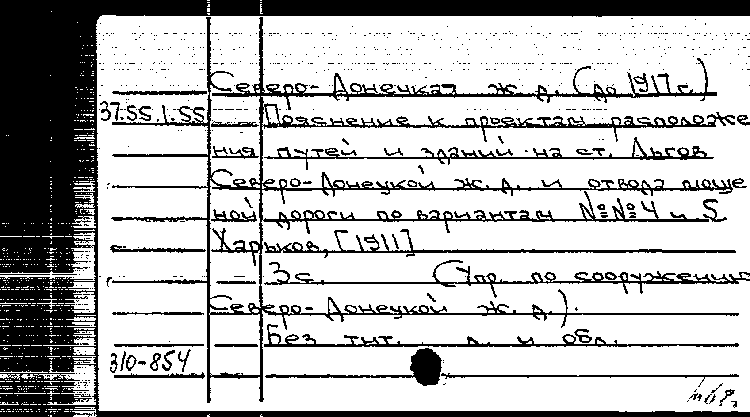 Северо-Донецкая ж. д. (до 1917 г.)
37.55.1.55 Пояснение к проектам расположе
ния путей и зданий на ст. Льгов
Северо-Донецкой ж. д. и отвода
ной дороги по вариантам №№ 4 и 5
Харьков, [1911]
3 с. (Упр. по сооружению
Северо-Донецкой ж. д.).
Без тит. л. и обл.
310-854